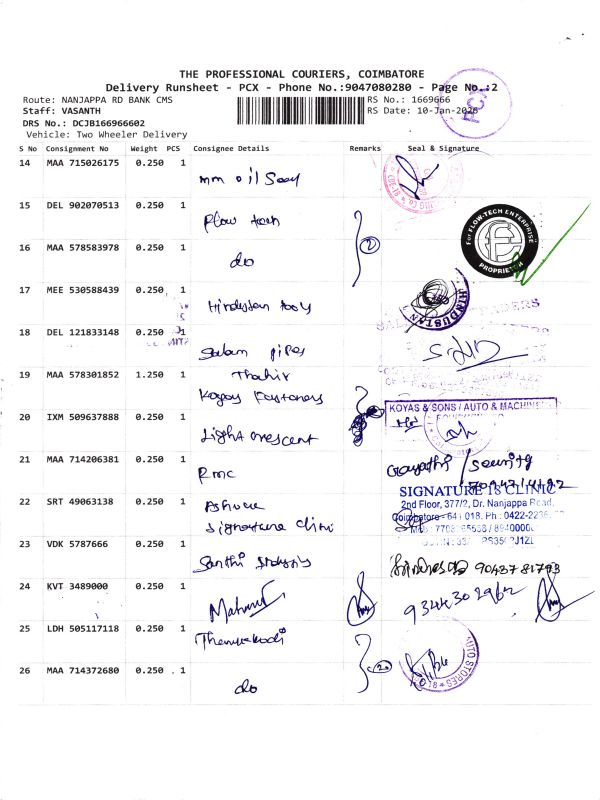 THE PROFESSIONAL COURIERS, COIMBATORE
Delivery Runsheet - PCX - Phone No.:9047080280 - Page No.:2
Route: NANJAPPA RD BANK CMS
RS No.: 1669666
Staff: VASANTH
RS Date: 10-Jan-2026
DRS No.: DCJB166966602
Vehicle: Two Wheeler Delivery
PCX
S No Consignment No Weight PCS Consignee Details Remarks Seal & Signature
14 MAA 715026175 0.250 1
mm oil Seal
15 DEL 902070513 0.250 1
Flow tech
For FLOW-TECH ENTERPRISE
PROPRIETOR
16 MAA 578583978 0.250 1
do
2
17 MEE 530588439 0.250 1
Hindustan tools
HINDUSTAN
18 DEL 121833148 0.250 1
Salam pipes
19 MAA 578301852 1.250 1
Thahir
Koyas Fasteners
KOYAS & SONS / AUTO & MACHINE
20 IXM 509637888 0.250 1
Light crescent
21 MAA 714206381 0.250 1
RMC
Gayathri / Security
22 SRT 49063138 0.250 1
Ashwa
Signature Clinic
SIGNATURE 18 CLINIC
2nd Floor, 377/2, Dr. Nanjappa Road,
Coimbatore - 641 018. Ph : 0422-2236
23 VDK 5787666 0.250 1
Santhi
90437 81793
24 KVT 3489000 0.250 1
9344302962
25 LDH 505117118 0.250 1
26 MAA 714372680 0.250 1
do
AUTO STORES